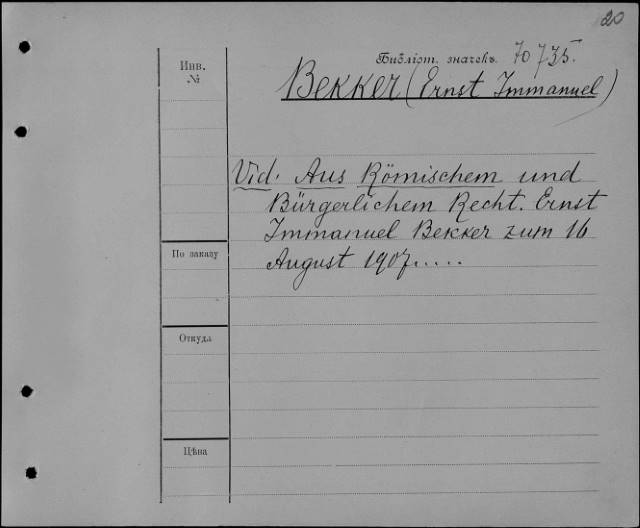 20
Инв. №
Библіот. значекъ. 70735.
Bekker (Ernst Immanuel)
Vid. Aus Römischem und
Bürgerlichem Recht. Ernst
Immanuel Bekker zum 16
August 1907.....
По заказу
Откуда
Цѣна